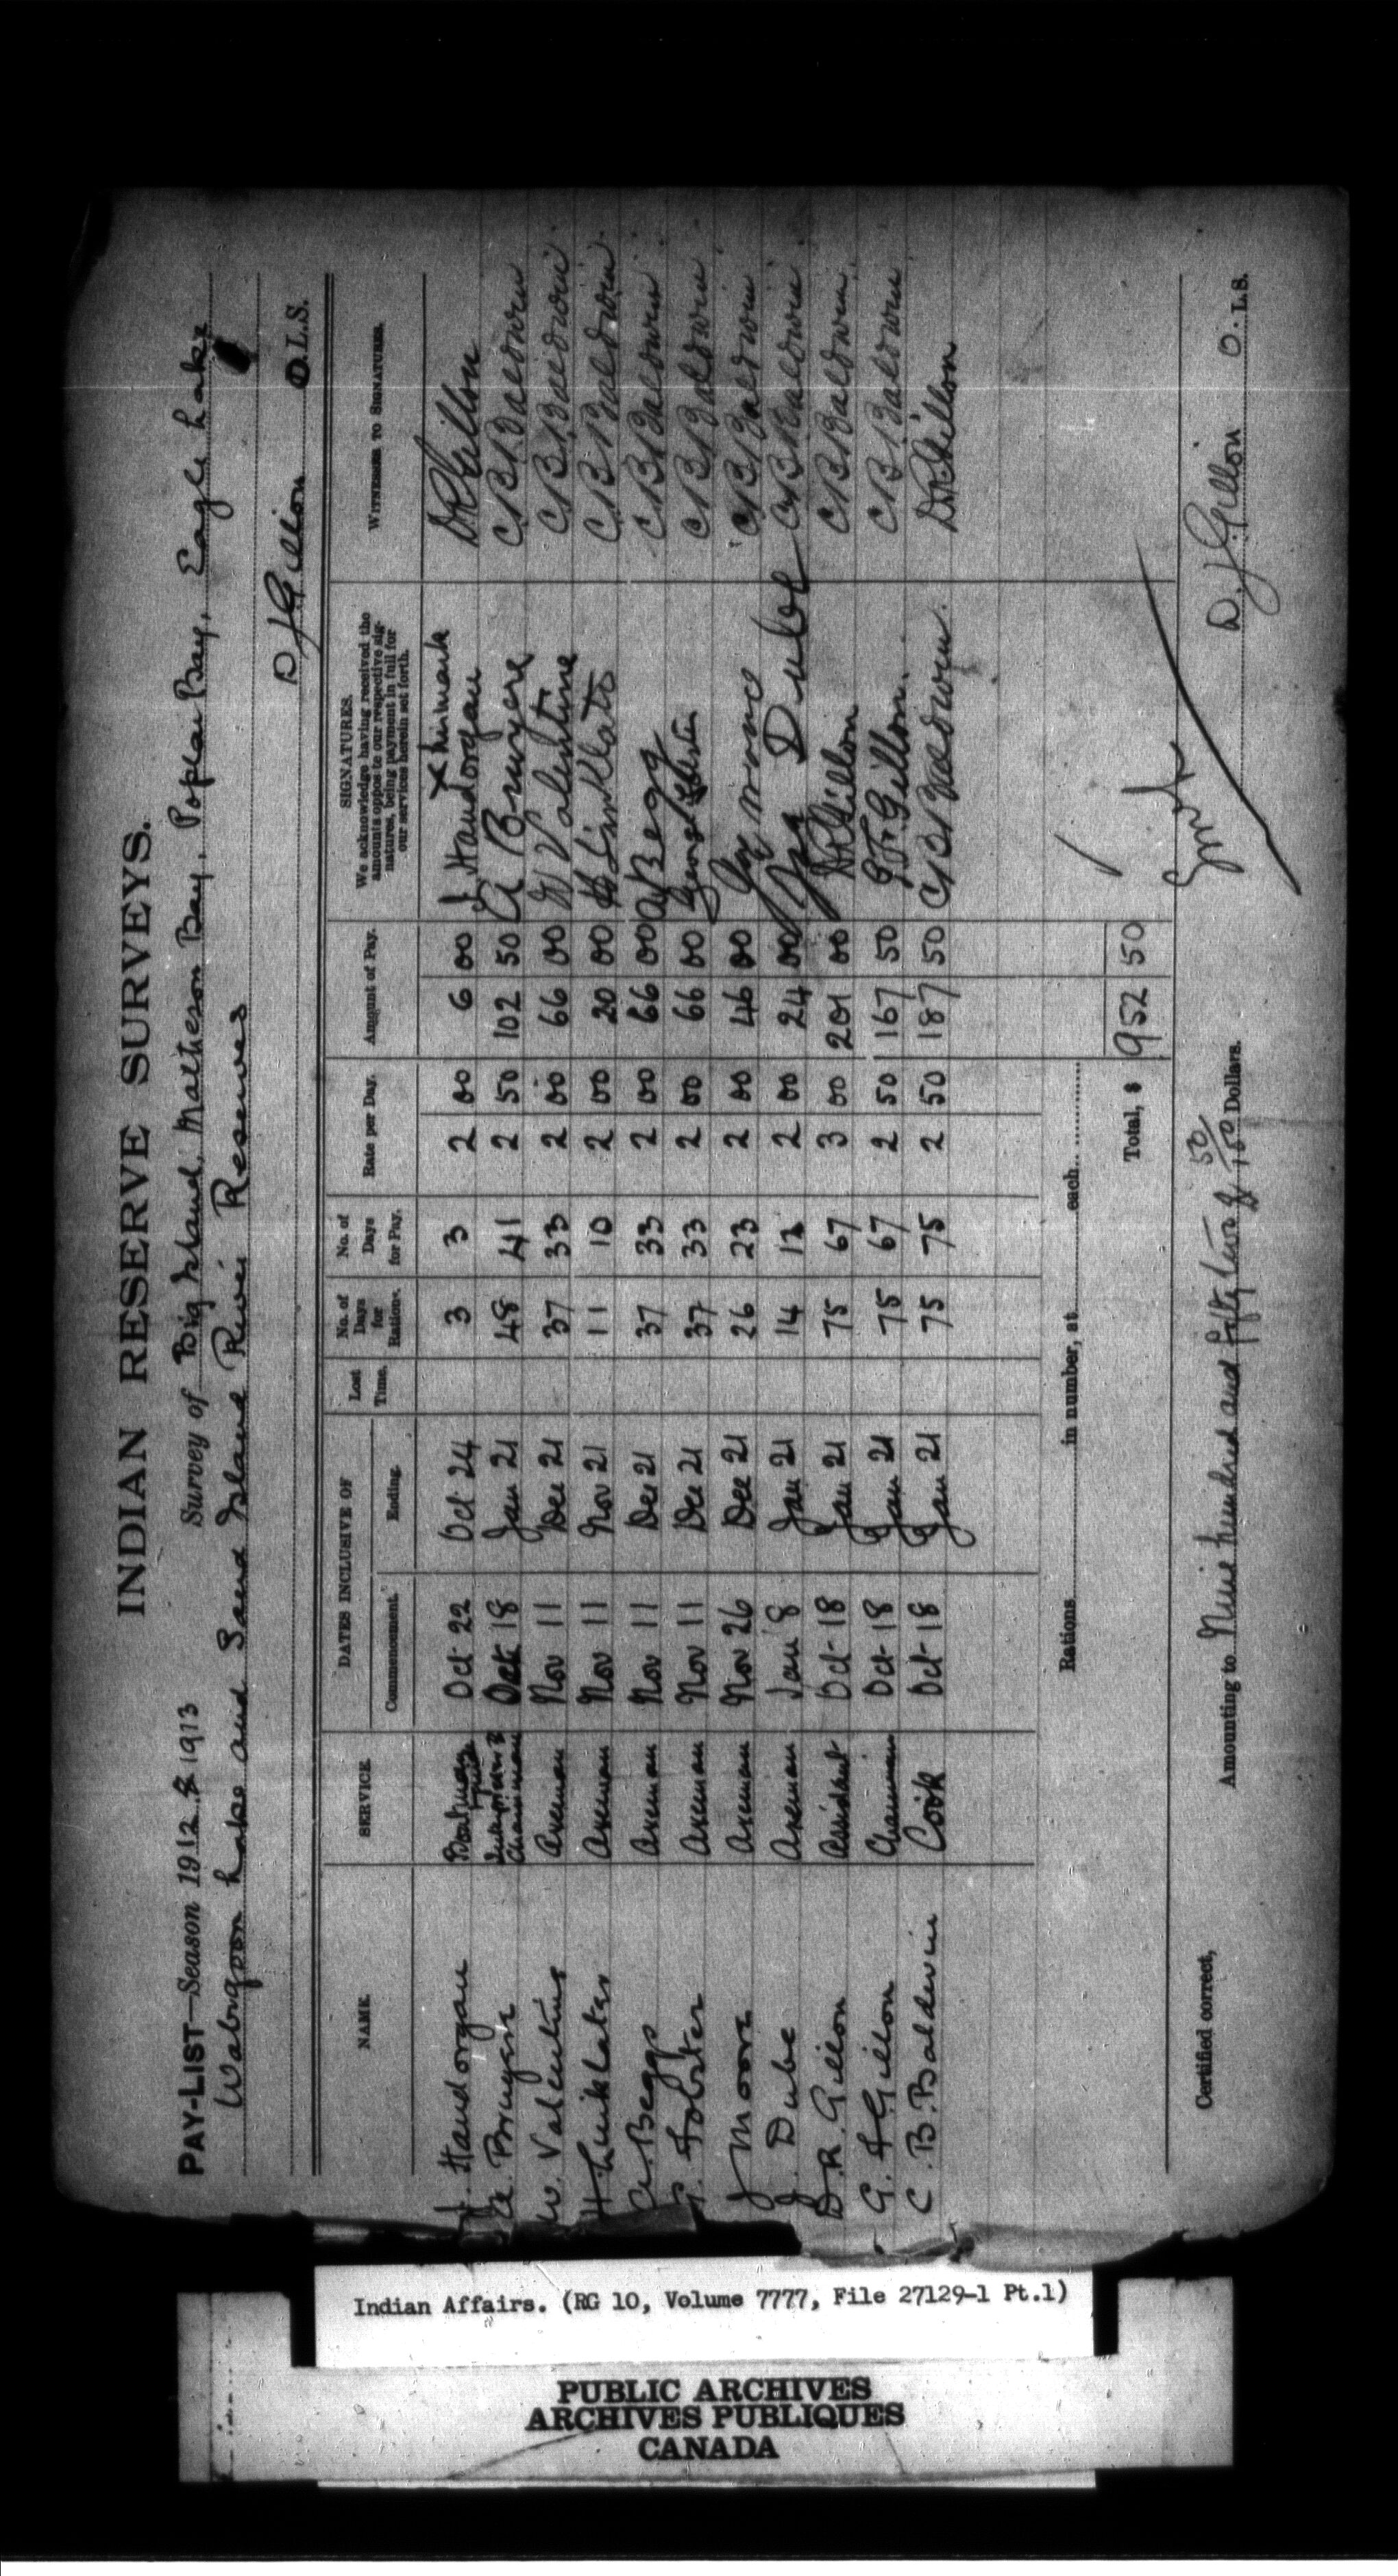 INDIAN RESERVE SURVEYS.
PAY-LIST—Season 1912 & 1913 Survey of Big Island, Matheson Bay, Poplar Bay, Eagle Lake
Wabigoon Lake and Sand Island River Reserves
D J Gillon O.L.S.
NAME. SERVICE DATES INCLUSIVE OF Lost Time. No. of Days for Rations. No. of Days for Pay. Rate per Day. Amount of Pay. SIGNATURES. WITNESSES TO SIGNATURES.
Commencement. Ending.
We acknowledge having received the amounts opposite to our respective signatures, being payment in full for our services herein set forth.
J. Handorgan Boatman Oct 22 Oct 24 3 3 2 00 6 00 J. Handorgan x his mark DR Gillon
A. Bruyere Chainman Oct 18 Jan 21 48 41 2 50 102 50 A Bruyere C B Baldwin
W. Valentine Axeman Nov 11 Dec 21 37 33 2 00 66 00 W Valentine C B Baldwin
H Linklater Axeman Nov 11 Nov 21 11 10 2 00 20 00 H Linklater C B Baldwin
A. Beggs Axeman Nov 11 Dec 21 37 33 2 00 66 00 A Begg C B Baldwin
G. Forster Axeman Nov 11 Dec 21 37 33 2 00 66 00 C B Baldwin
J Moore Axeman Nov 26 Dec 21 26 23 2 00 46 00 C B Baldwin
J. Dube Axeman Jan 8 Jan 21 14 12 2 00 24 00 Dube C B Baldwin
D. R. Gillon Assistant Oct 18 Jan 21 75 67 3 00 201 00 DR Gillon C B Baldwin
G. F. Gillon Chainman Oct 18 Jan 21 75 67 2 50 167 50 G F Gillon. C B Baldwin
C. B. Baldwin Cook Oct 18 Jan 21 75 75 2 50 187 50 C B Baldwin. DR Gillon
Rations in number, at each
Total, $ 952 50
Certified correct, Amounting to Nine hundred and fifty two & 50/100 Dollars.
D. J Gillon O. L.S.
Indian Affairs. (RG 10, Volume 7777, File 27129-1 Pt.1)
PUBLIC ARCHIVES
ARCHIVES PUBLIQUES
CANADA